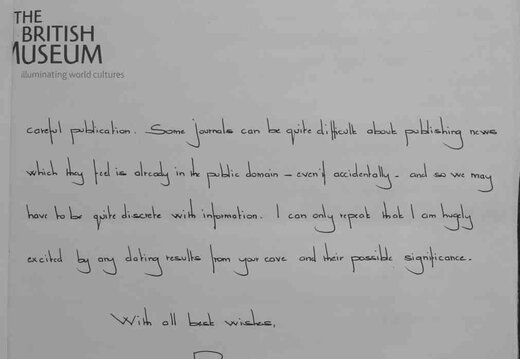 THE
BRITISH
MUSEUM
illuminating world cultures
careful publication. Some journals can be quite difficult about publishing news
which they feel is already in the public domain – even if accidentally – and so we may
have to be quite discrete with information. I can only repeat that I am hugely
excited by any dating results from your cave and their possible significance.
With all best wishes,